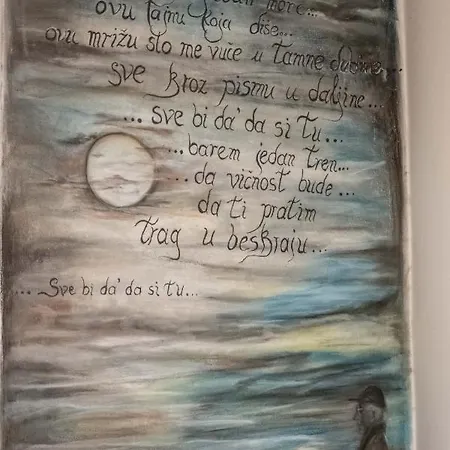 more...
ovu tajnu koja diše...
ovu mrižu što me vuče u tamne dubine...
sve kroz pismu u daljine...
...sve bi da' da si tu...
...barem jedan tren...
...da vičnost bude...
da ti pratim
trag u beskraju...
... Sve bi da' da si tu...